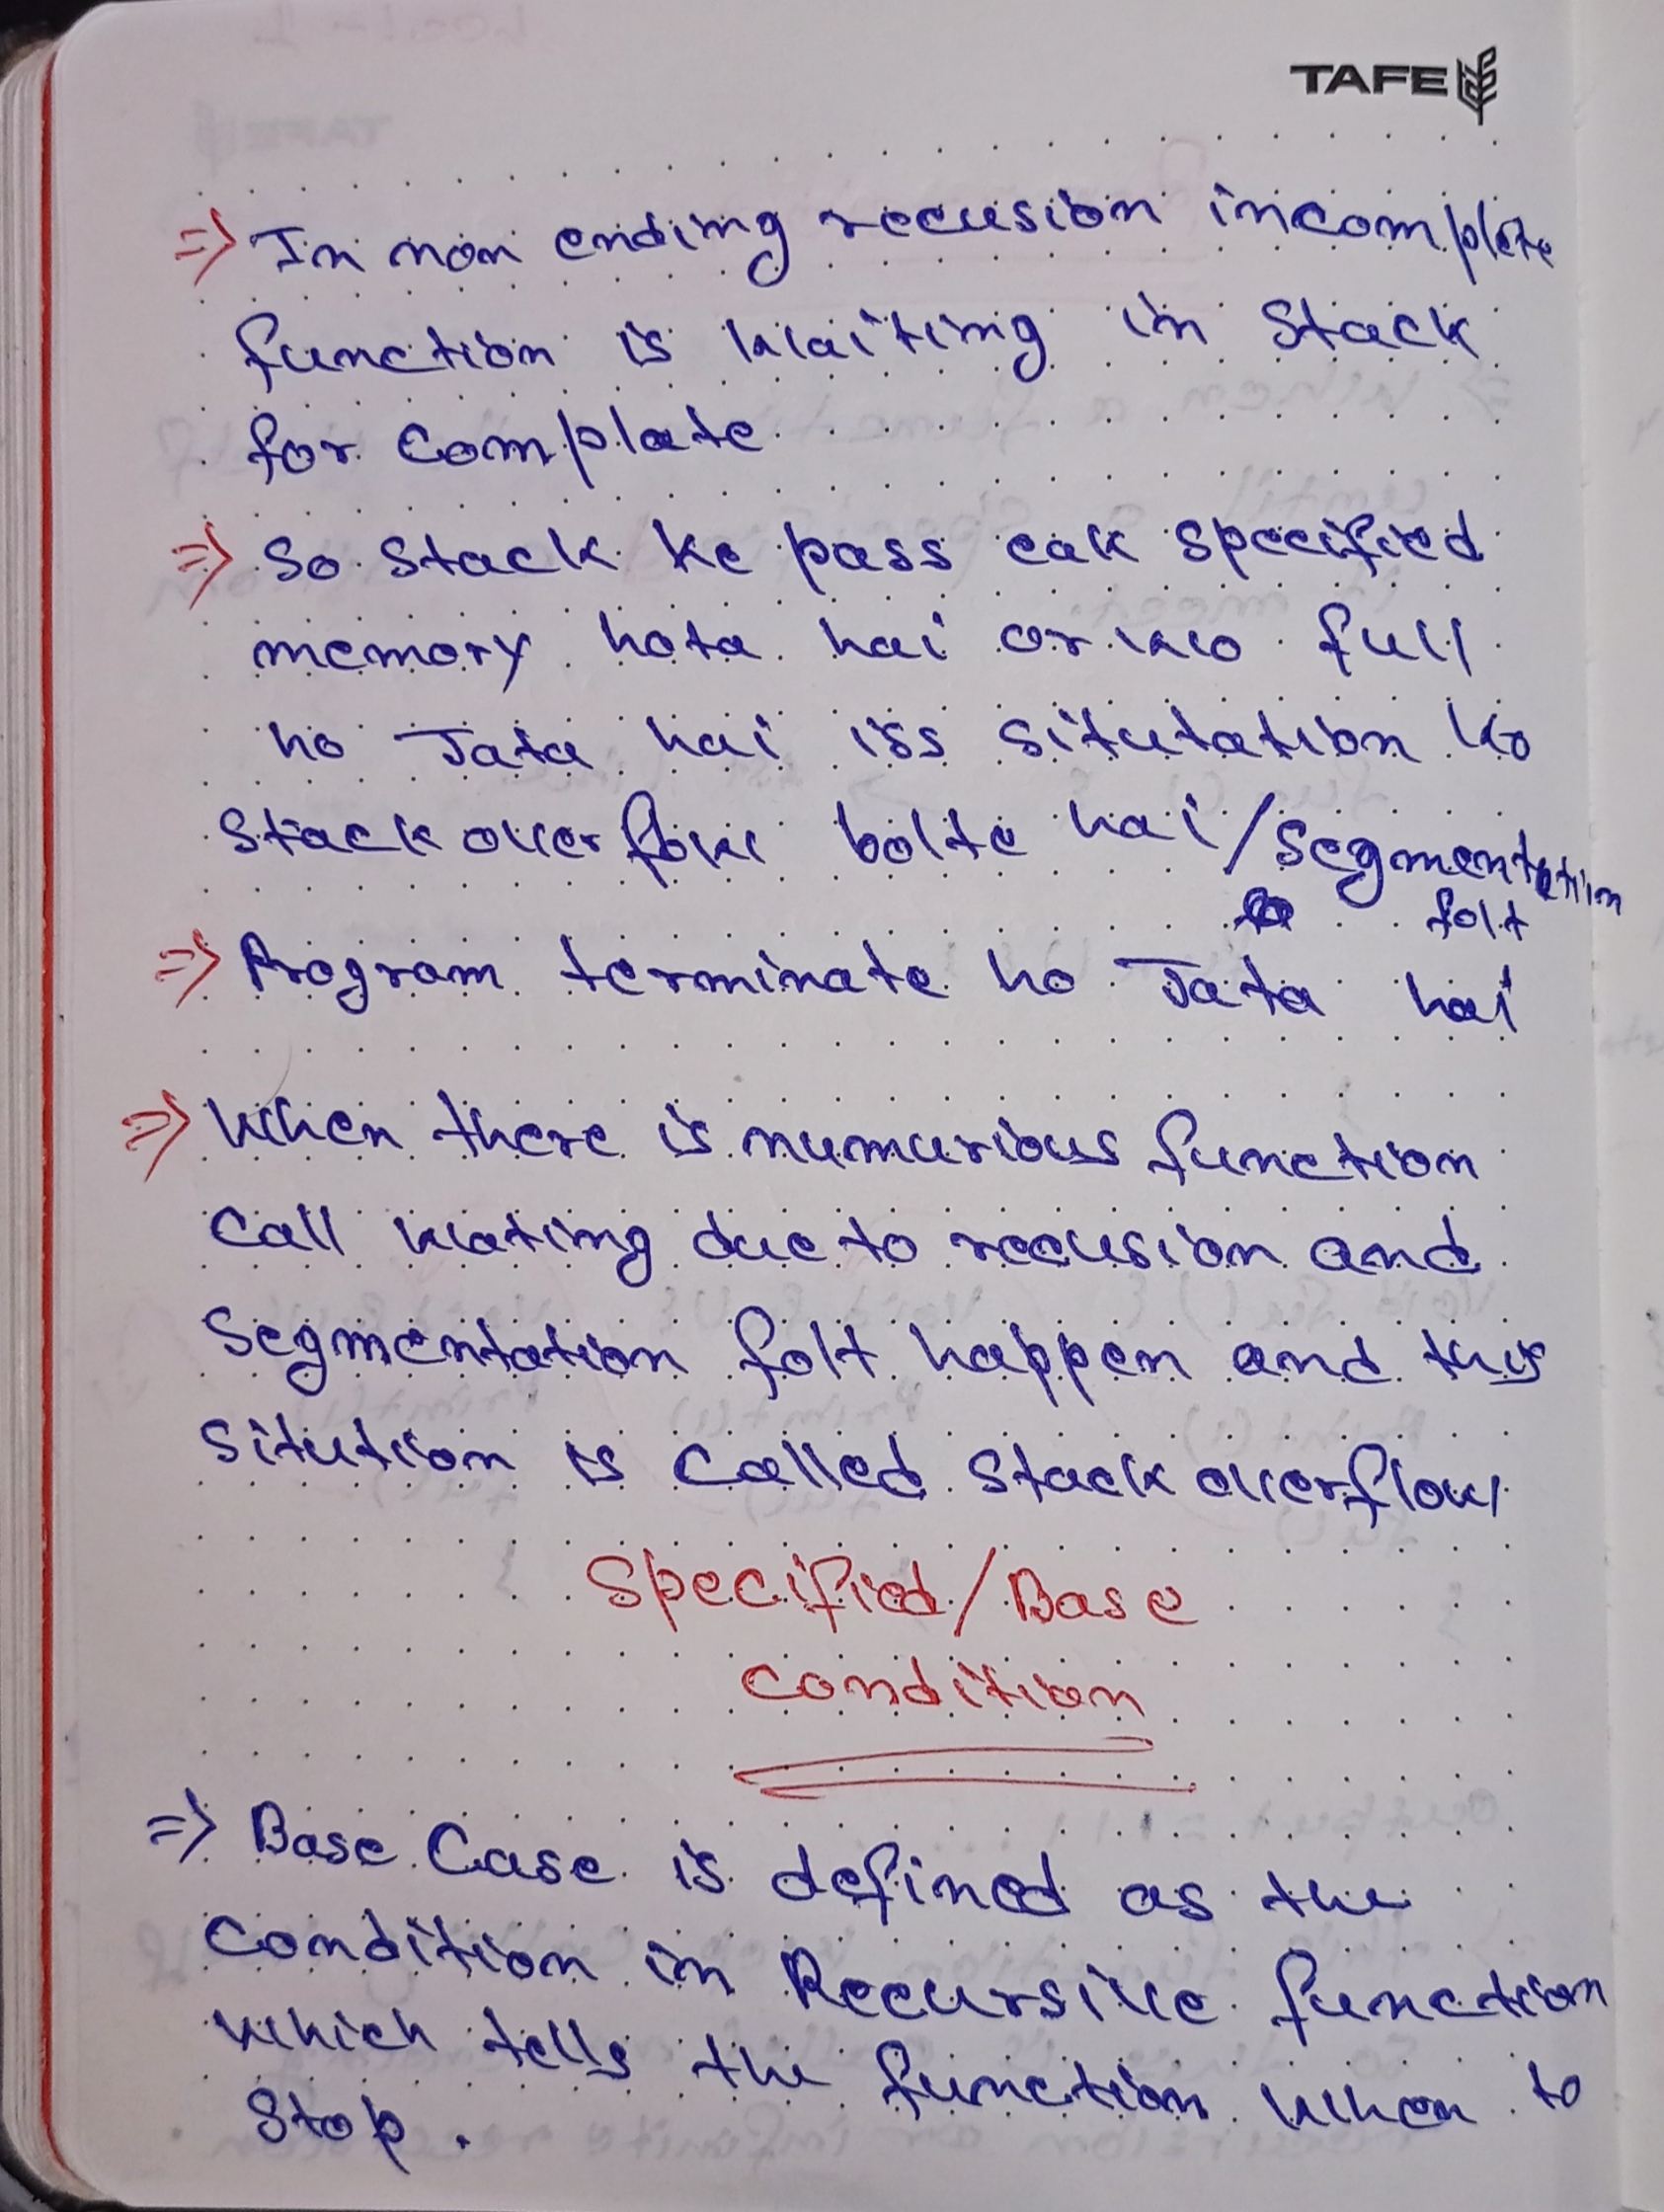 TAFE
⇒ In non ending recusion incomplete
function is waiting in stack
for complate
⇒ So stack ke pass eak specified
memory hota hai or wo full
ho Jata hai iss situtation ko
stack overflow bolte hai/segmentation
folt
⇒ Program terminate ho Jata hai
⇒ When there is numurious function
call wating due to recusion and
segmentation folt happen and this
sitution is called stack overflow
Specified/Base
condition
⇒ Base Case is defined as the
condition in Recursive function
which tells the function when to
stop.